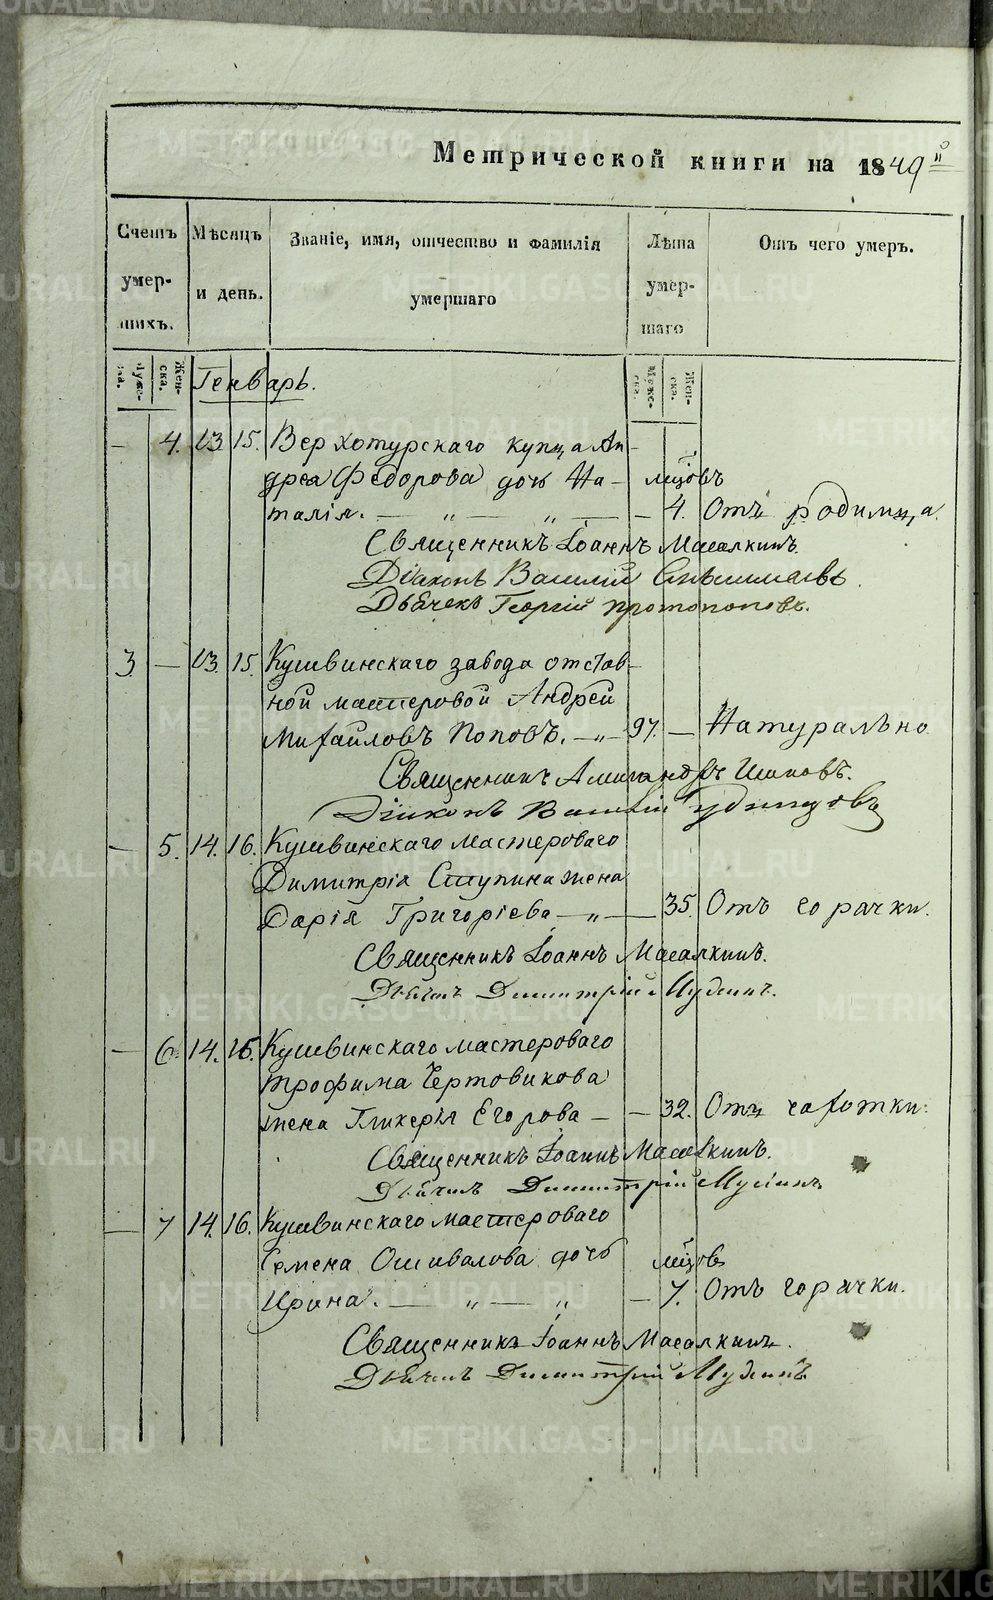 METRIKI.GASO-URAL.RU
Метрической книги на 1849й
Счетъ умер- шихъ.
Мѣсяцъ и день.
Званіе, имя, отчество и фамилія умершаго
Лѣта умер- шаго
Отъ чего умеръ.
Муже- ска. Жен- ска.
Генварь.
Муже- ска. Жен- ска.
— 4. 13 15. Верхотурскаго купца Ан-
дрея Федорова дочь На- мцовъ
талія. — „ — „ — — 4. Отъ родимца.
Священникъ Іоаннъ Масалкинъ.
Діаконъ Василій
Дьячекъ Георгій Протопоповъ.
3 — 13. 15. Кушвинскаго завода отстав-
ной мастеровой Андрей
Михайловъ Поповъ. — „ — 97. — Натурально
Священникъ Александръ Шиповъ.
Діаконъ Василій Удинцовъ
— 5. 14. 16. Кушвинскаго мастероваго
Димитрія Ступина жена
Дарія Григоріева — „ — 35. Отъ горячки.
Священникъ Іоаннъ Масалкинъ.
Дьячекъ Димитрій
— 6. 14. 16. Кушвинскаго мастероваго
Трофима Чертовикова
жена Гликерія Егорова — — 32. Отъ чахотки.
Священникъ Іоаннъ Масалкинъ.
Дьячекъ Димитрій
— 7 14. 16. Кушвинскаго мастероваго
Семена Ошивалова дочь мцовъ
Ирина. — „ — „ — 7. Отъ горячки.
Священникъ Іоаннъ Масалкинъ.
Дьячекъ Димитрій